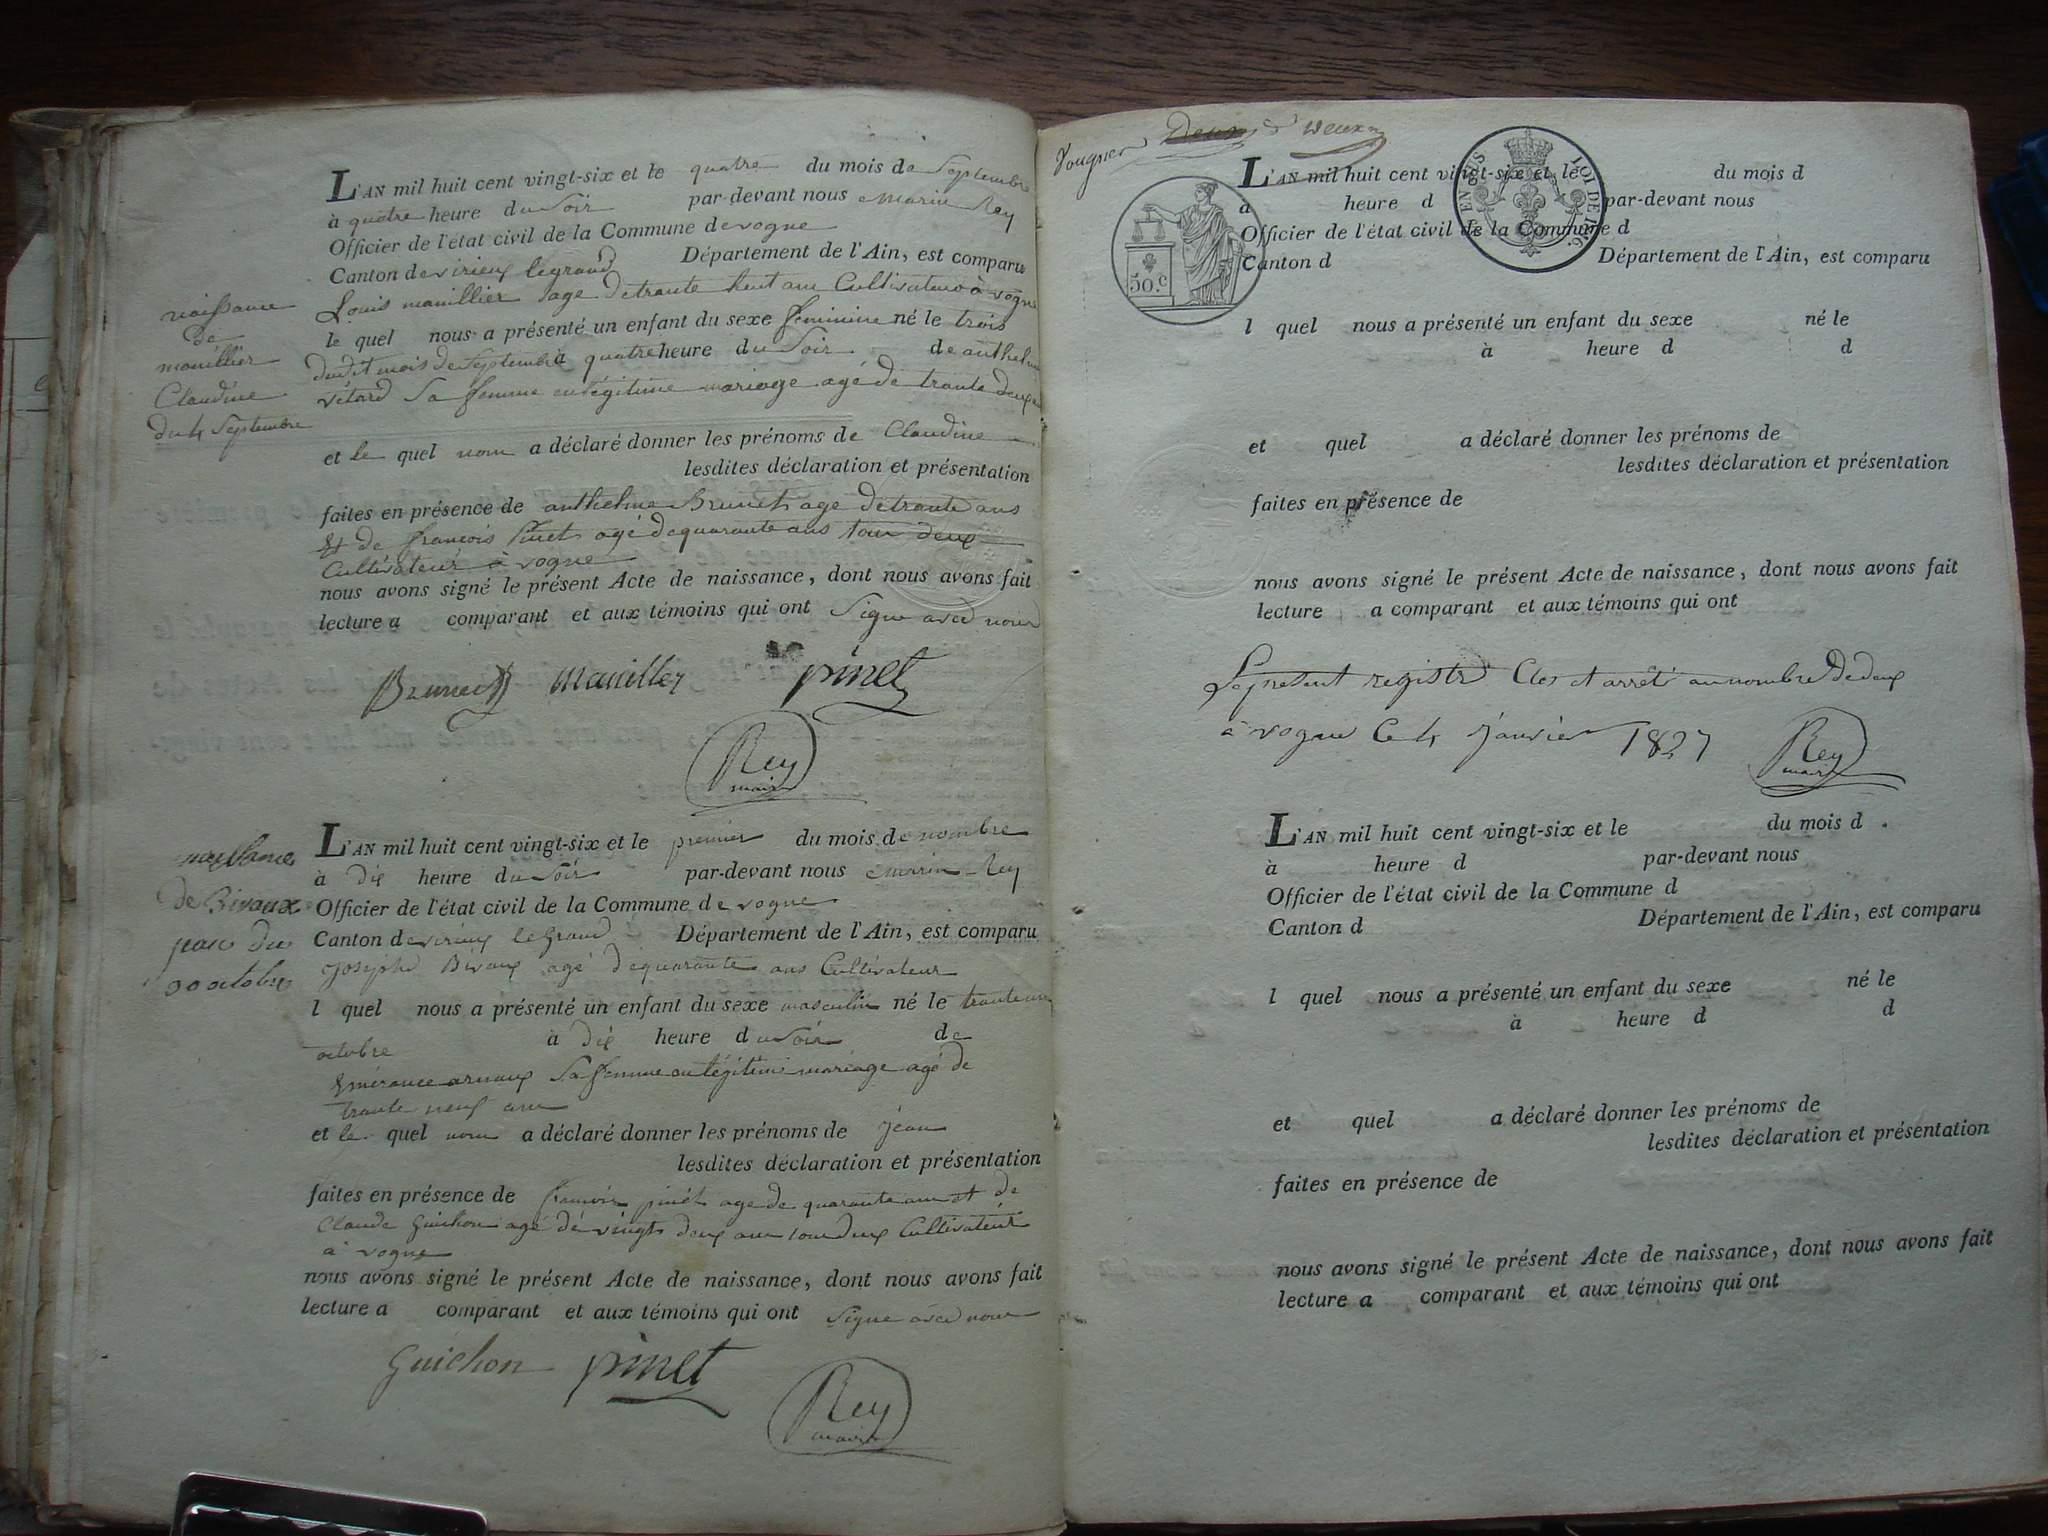 L'AN mil huit cent vingt-six et le quatre du mois de Septembre
à quatre heure du Soir par-devant nous Marin Rey
Officier de l'état civil de la Commune de vogne
Canton de virieux legrand Département de l'Ain, est comparu
Louis manillier age de trante huit ans Cultivateur a vogne
le quel nous a présenté un enfant du sexe feminine né le trois
dudit mois de Septembre à quatre heure du Soir de anthelme
vétard Sa femme en légitime mariage agé de trante deux
et le quel nom a déclaré donner les prénoms de Claudine
lesdites déclaration et présentation
faites en présence de anthelme Brunet age de trante ans
et de francois Pinet agé de quarante ans tous deux
Cultivateur à vogne
nous avons signé le présent Acte de naissance, dont nous avons fait
lecture a comparant et aux témoins qui ont Signe avec nous
naissance
de
manillier
Claudine
du 4 Septembre
Brunet manillier pinet
Rey
maire
L'AN mil huit cent vingt-six et le premier du mois de nombre
à dix heure du Soir par-devant nous Marin Rey
Officier de l'état civil de la Commune de vogne
Canton de virieux le Grand Département de l'Ain, est comparu
Joseph Bivaux agé de quarante ans Cultivateur
l quel nous a présenté un enfant du sexe masculin né le trante un
octobre à dix heure du Soir de
Emérance arnaux Sa femme en légitime mariage agé de
trante neuf ans
et le quel nom a déclaré donner les prénoms de jean
lesdites déclaration et présentation
faites en présence de francois pinet age de quarante ans et de
Claude Guichon agé de vingts deux ans tous deux Cultivateur
à vogne
nous avons signé le présent Acte de naissance, dont nous avons fait
lecture a comparant et aux témoins qui ont Signe avec nous
naissance
de Bivaux
jean du
octobre
Guichon pinet
Rey
maire
deux
deux
EN SUS LOI DE
50.c
L'AN mil huit cent vingt-six et le du mois d
à heure d par-devant nous
Officier de l'état civil de la Commune d
Canton d Département de l'Ain, est comparu
l quel nous a présenté un enfant du sexe né le
à heure d d
et quel a déclaré donner les prénoms de
lesdites déclaration et présentation
faites en présence de
nous avons signé le présent Acte de naissance, dont nous avons fait
lecture a comparant et aux témoins qui ont
Le présent registre Clos et arrêté au nombre de deux
à vogne Ce 4 janvier 1827
Rey
maire
L'AN mil huit cent vingt-six et le du mois d
à heure d par-devant nous
Officier de l'état civil de la Commune d
Canton d Département de l'Ain, est comparu
l quel nous a présenté un enfant du sexe né le
à heure d d
et quel a déclaré donner les prénoms de
lesdites déclaration et présentation
faites en présence de
nous avons signé le présent Acte de naissance, dont nous avons fait
lecture a comparant et aux témoins qui ont